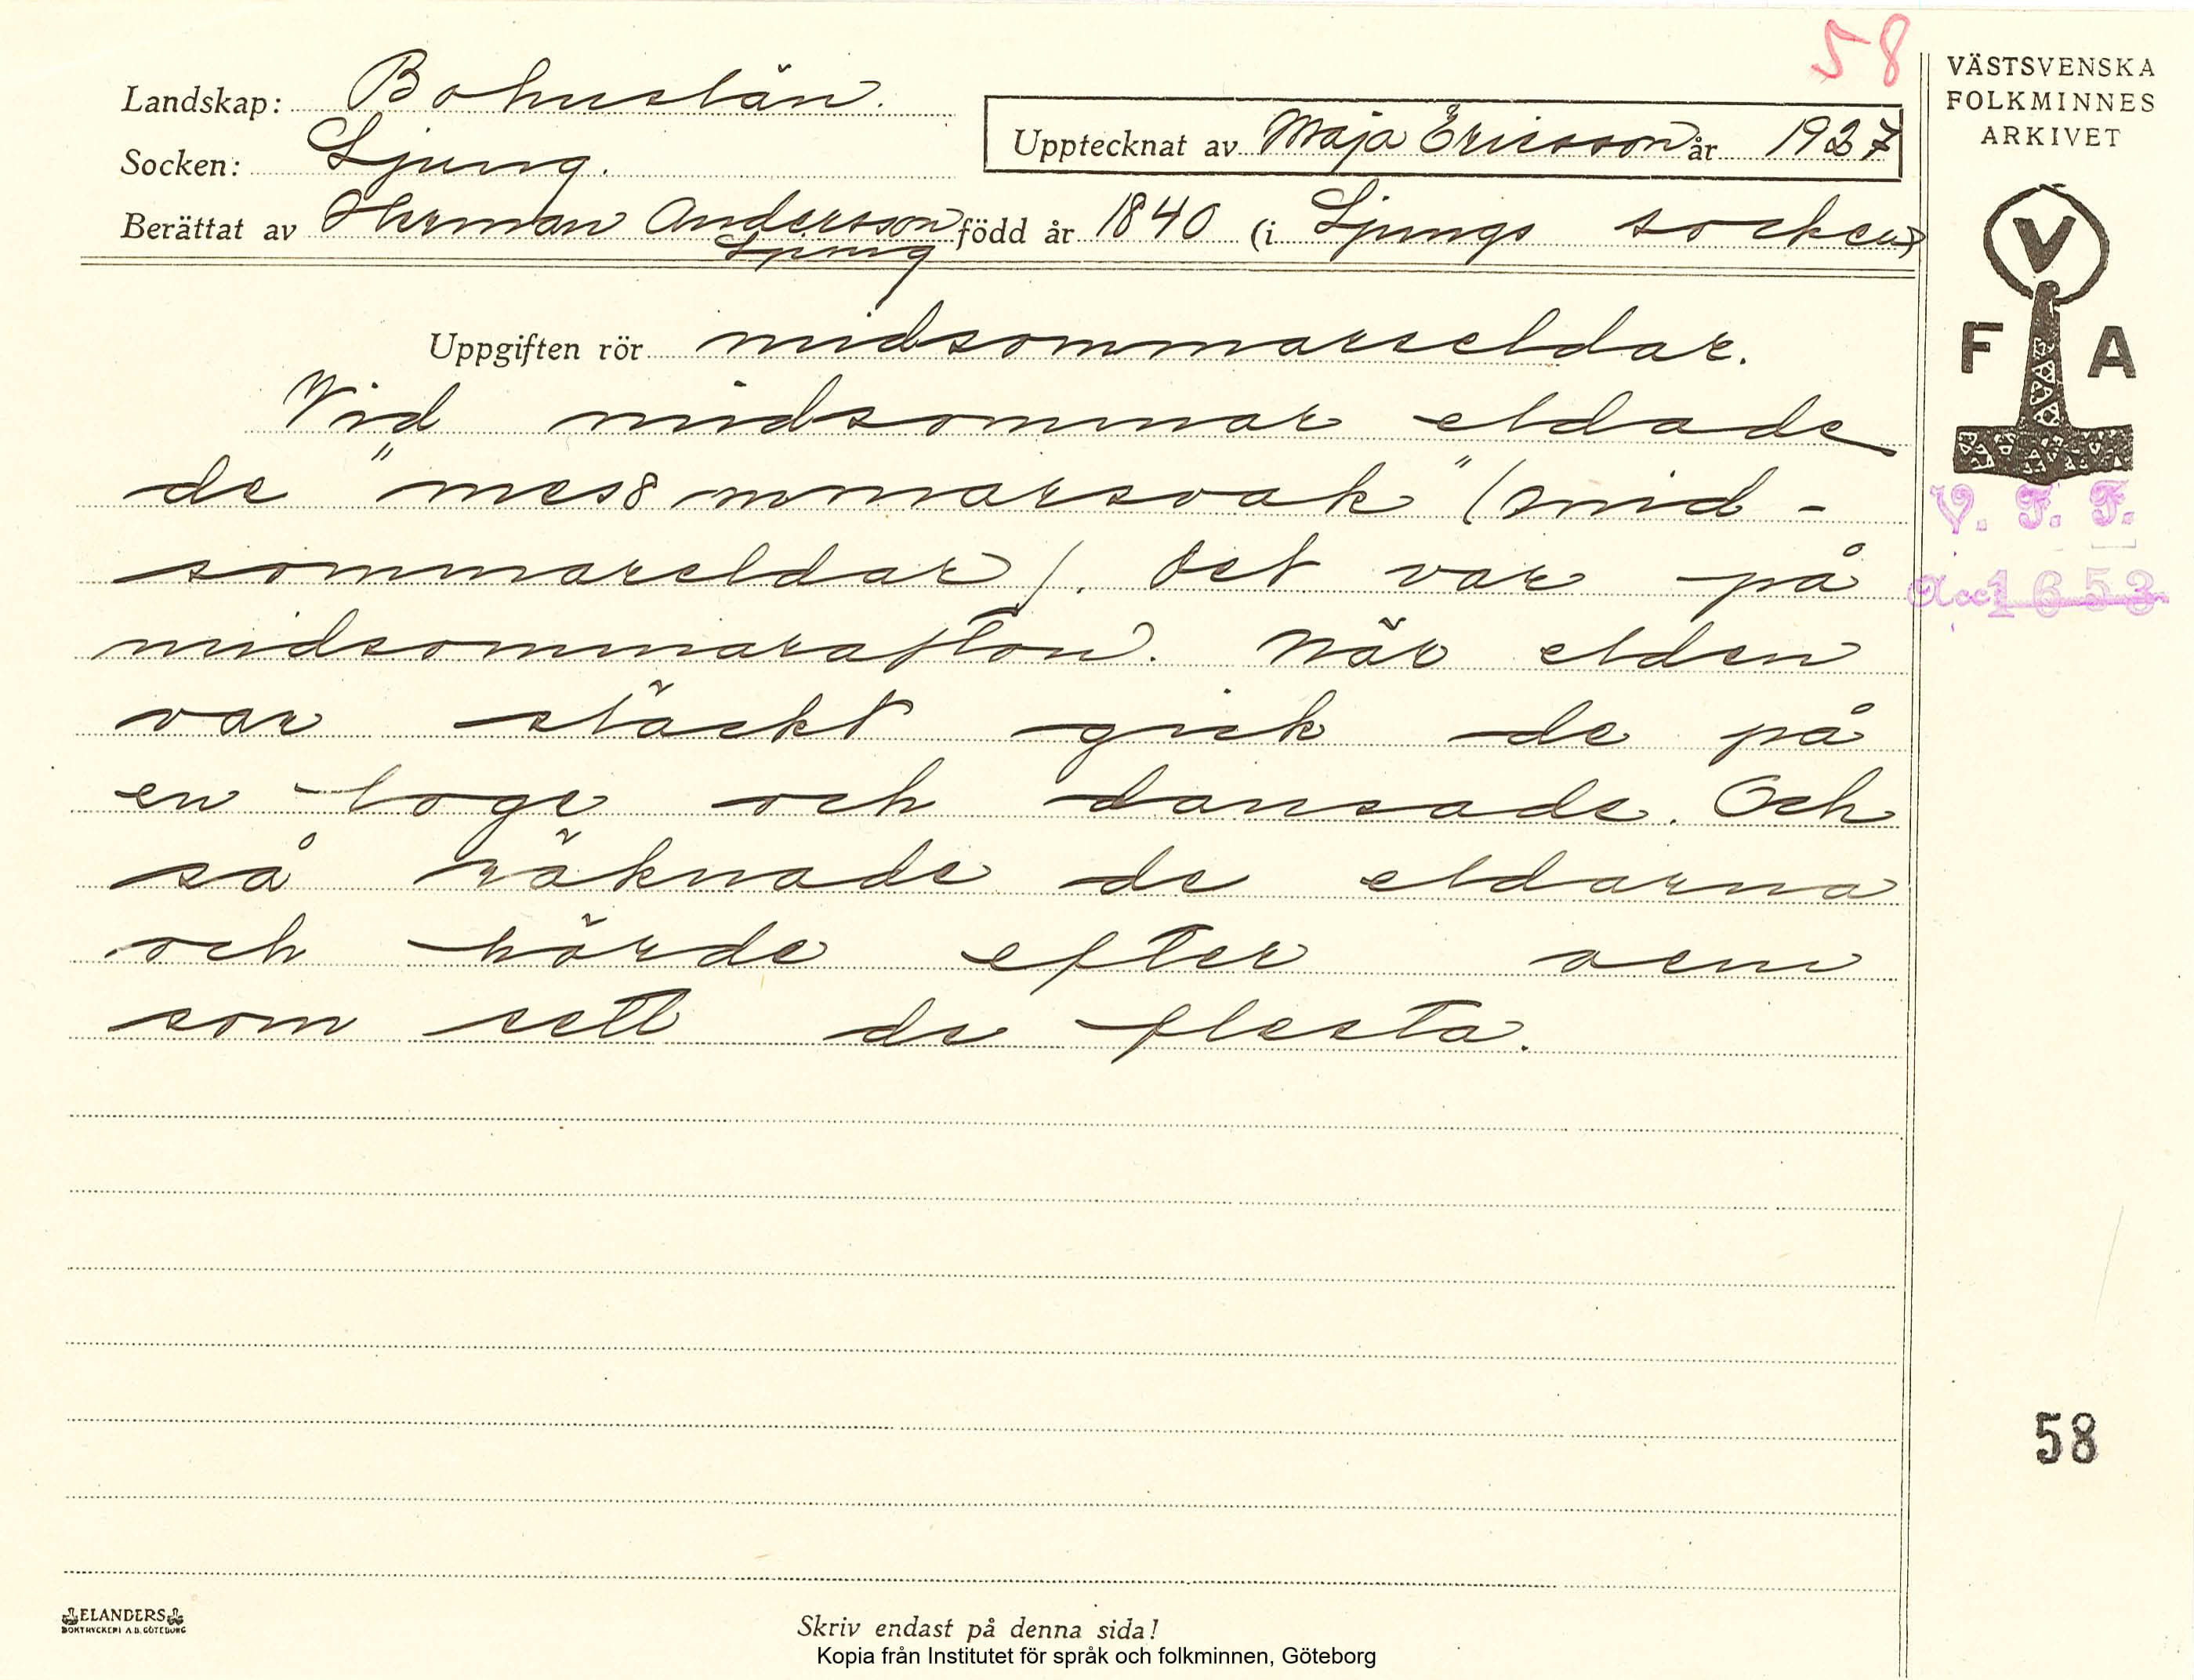 58
Landskap: Bohuslän.
Socken: Ljung.
Upptecknat av Maja Ericsson år 1927
Berättat av Herman Andersson född år 1840 (i Ljungs socken)
Ljung
Uppgiften rör midsommarseldar.
Vid midsommar eldade
de "mes8mmarsvak" (mid-
sommareldar). Det var på
midsommarafton. När elden
var släckt gick de på
en loge och dansade. Och
så räknade de eldarna
och hörde efter vem
som sett de flesta.
VÄSTSVENSKA
FOLKMINNES
ARKIVET
V
F A
V. F. F.
Acc 1653
58
ELANDERS
BOKTRYCKERI A.B. GÖTEBORG
Skriv endast på denna sida!
Kopia från Institutet för språk och folkminnen, Göteborg